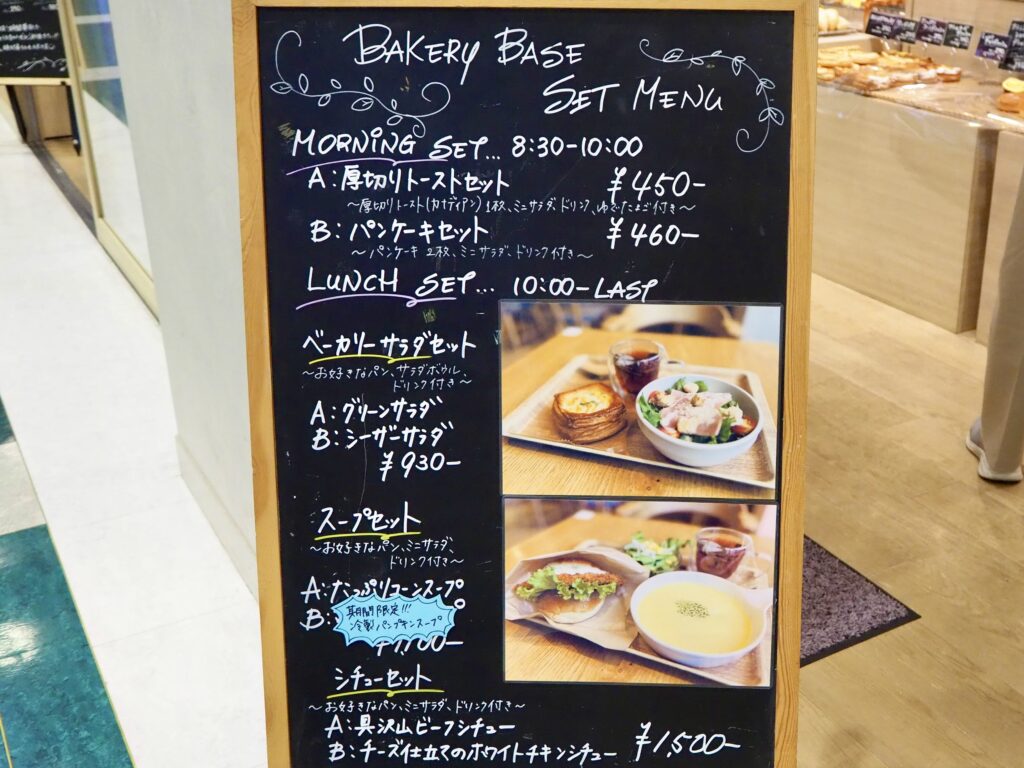 BAKERY BASE
SET MENU
MORNING SET... 8:30-10:00
A:厚切りトーストセット ¥450-
〜厚切りトースト(カナディアン)1枚、ミニサラダ、ドリンク、ゆでたまご付き〜
B:パンケーキセット ¥460-
〜パンケーキ2枚、ミニサラダ、ドリンク付き〜
LUNCH SET... 10:00-LAST
ベーカリーサラダセット
〜お好きなパン、サラダボウル、
ドリンク付き〜
A:グリーンサラダ
B:シーザーサラダ
¥930-
スープセット
〜お好きなパン、ミニサラダ、
ドリンク付き〜
A:たっぷりコーンスープ
B:
期間限定!!!
冷製パンプキンスープ
プ
シチューセット
〜お好きなパン、ミニサラダ、ドリンク付き〜
A:具沢山ビーフシチュー
B:チーズ仕立てのホワイトチキンシチュー ¥1,500-